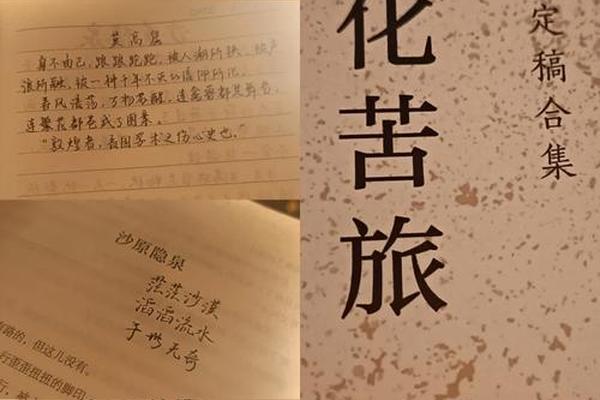 莫高窟
身不由己,踉踉跄跄,被人潮所挟,被声
浪所融,被一种千年不灭的信仰所化。
春风浩荡,万物苏醒,连禽兽都是舞者,
连繁花都卷成了图案。
“敦煌者,吾国学术之伤心史也。”
沙原隐泉
茫茫沙漠
滔滔流水
于世无奇
有路的,但这儿没有。
行歪歪扭扭的脚印
化苦旅
定稿合集